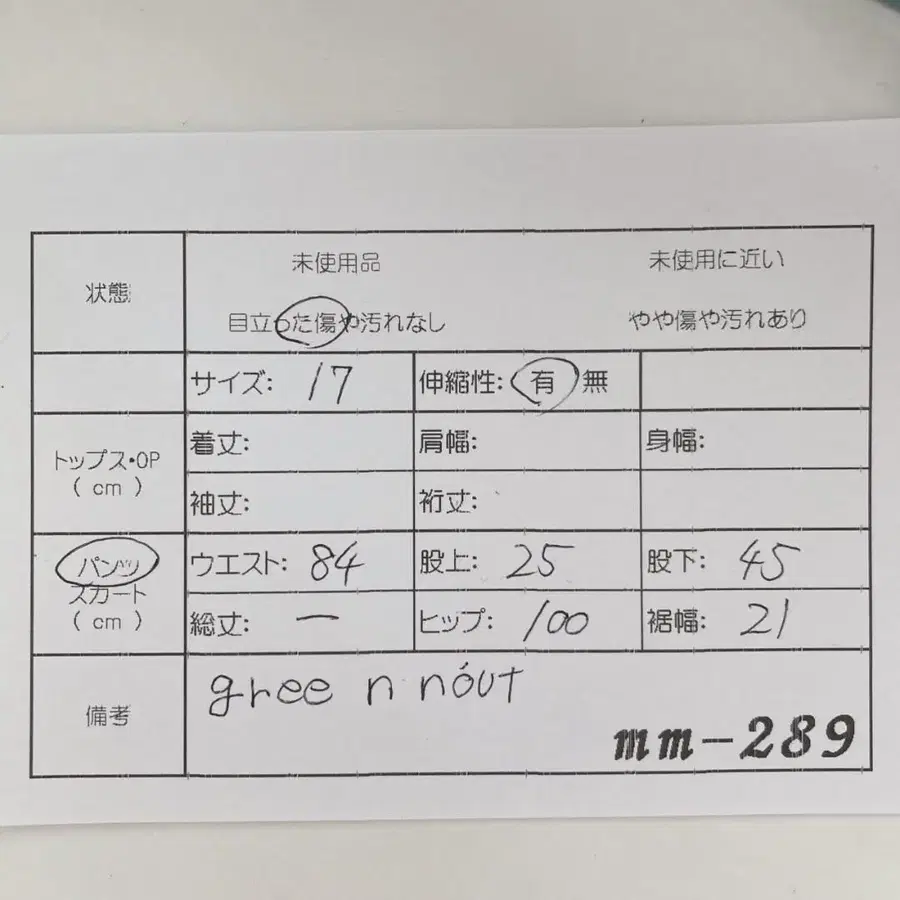 状態
未使用品 未使用に近い
目立った傷や汚れなし やや傷や汚れあり
サイズ: 17 伸縮性: 有 無
トップス・OP
( cm )
着丈: 肩幅: 身幅:
袖丈: 裄丈:
パンツ
スカート
( cm )
ウエスト: 84 股上: 25 股下: 45
総丈: ー ヒップ: 100 裾幅: 21
備考
gree n nóut
mm-289